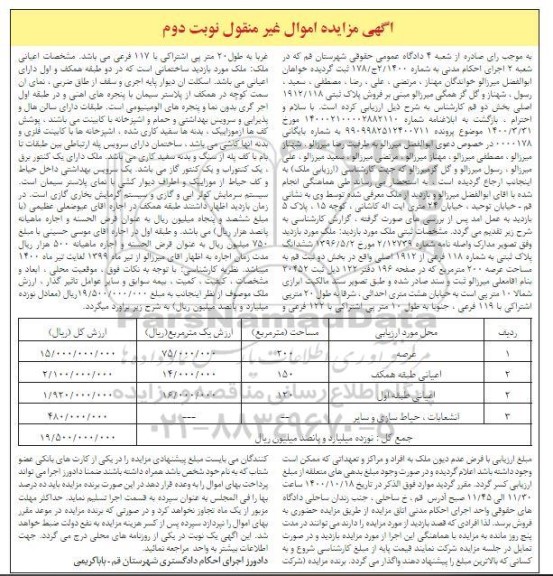 آگهی مزایده اموال غیر منقول نوبت دوم
به موجب رای صادره از شعبه ۴ دادگاه عمومی حقوقی شهرستان قم که در
شعبه ۲ اجرای احکام مدنی به شماره ۲/۱۴۰۰ج/۱۷۸ ثبت گردیده خواهان
ابوالفضل میرزالو خواندگان مهناز ، مرتضی ، علی ، رضا ، مصطفی ، سعید ،
رسول ، شهناز و گل گز همگی میرزالو مبنی بر فروش پلاک ثبتی ۱۹۱۲/۱۱۸
اصلی بخش دو قم کارشناسی به شرح ذیل ارزیابی کرده است. با سلام و
احترام ، بازگشت به ابلاغنامه شماره
۱۴۰۰/۳/۳۱ موضوع پرونده ۹۹۰۹۹۸۲۵۱۲۴۰۰۷۱۱ به شماره بایگانی
۰۰۰۰۱۷۸ در خصوص دعوی ابوالفضل میرزالو به طرفیت رضا میرزالو ، شهناز
میرزالو ، مصطفی میرزالو ، مهناز میرزالو ، مرتضی میرزالو ، سعید میرزالو ، علی
میرزالو ، رسول میرزالو و گل گز میرزالو که جهت کارشناسی (ارزیابی ملک) به
اینجانب ارجاع گردیده است ، به استحضار می رساند طی هماهنگی انجام
شده با آقای ابوالفضل میرزالو و بازدید از ملک معرفی شده توسط وی به نشانی
قم - خیابان توحید ، خیابان ۲۴ متری آیت اله کاشانی ، کوچه ۱۵ ، پلاک ۵
بازدید به عمل آمد پس از بررسی های صورت گرفته ، گزارش کارشناسی به
شرح زیر تقدیم می گردد. مشخصات ثبتی ملک مورد بازدید: ملک مورد بازدید
وفق تصویر مدارک واصله نامه شماره ۲/۱۲۷۳۹ مورخ ۱۳۹۶/۵/۲ ششدانگ
پلاک ثبتی به شماره ۱۱۸ فرعی از ۱۹۱۲ اصلی واقع در بخش دو ثبت قم به
مساحت عرصه ۲۰۰ مترمربع که در صفحه ۱۹۶ دفتر ۱۲۲ ذیل ثبت ۳۰۴۵۲
بنام آقامعلی میرزالو ثبت و سند صادر شده و طبق تصویر سند مالکیت ابرازی
شمالا ۱۰ متر پی است به خیابان هشت متری احداثی ، شرقا به طول ۲۰ متر پی
اشتراکی با ۱۱۹ فرعی ، جنوبا به طول ۱۰ متر پی اشتراکی با ۱۲۲ فرعی و
غربا به طول ۲۰ متر پی اشتراکی با ۱۱۷ فرعی می باشد. مشخصات اعیانی
ملک: ملک مورد بازدید ساختمانی است که در دو طبقه همکف و اول دارای
اعیانی می باشد. اسکلت آن دیوار پایه آجری و سقف از طاق ضربی ، نمای آن
سمت کوچه در همکف از پلاستر سیمان با پنجره های آهنی و در طبقه اول
آجر گری بدون نما و پنجره های آلومینیومی است. طبقات دارای سالن هال و
پذیرایی و سرویس بهداشتی و حمام و آشپزخانه با کابینت می باشند ، پوشش
کف ها از موزاییک ، بدنه ها سفید کاری شده ، آشپزخانه ها با کابینت فلزی و
بدنه آنها کاشی می باشد ، ساختمان دارای سرویس پله ارتباطی بین طبقات تا
بام با کف پله از سنگ و بدنه سفید کاری می باشد. ملک دارای یک کنتور برق
، یک کنتور آب و یک کنتور گاز می باشد. یک سرویس بهداشتی داخل حیاط
و کف حیاط از موزاییک و اطراف دیوار کشی با نمای پلاستر سیمان است.
سیستم سرمایش کولر آبی و گازی و سیستم گرمایش بخاری گازی است. در
زمان بازدید اظهار داشتند طبقه همکف در اجاره آقای عیوضعلی عظیمی (با
مبلغ ششصد و پنجاه میلیون ریال به عنوان قرض الحسنه و اجاره ماهیانه
پانصد هزار ریال) می باشد. و طبقه اول در اجاره آقای موسی حسینی با مبلغ
۷۵۰ میلیون ریال به عنوان قرض الحسنه و اجاره ماهیانه ۵۰۰ هزار ریال
مدت زمان اجاره به اظهار آقای میرزالو از تیر ماه ۱۳۹۹ لغایت تیر ماه ۱۴۰۰
میباشد. نظریه کارشناسی: با توجه به نکات فوق ، موقعیت محلی ، ابعاد و
مشخصات ، کیفیت ، کمیت ، بیمه سوابق و سایر عوامل تاثیر گذار ، ارزش
ملک موصوف از نظر اینجانب به مبلغ ۱۹/۵۰۰/۰۰۰/۰۰۰ ریال (معادل نوزده
میلیارد و پانصد میلیون ریال) به شرح زیر برآورد میگردد.
ردیف محل مورد ارزیابی مساحت (مترمربع) ارزش یک مترمربع(ریال) ارزش کل (ریال)
۱ عرصه ۲۰۰ ۷۵/۰۰۰/۰۰۰ ۱۵/۰۰۰/۰۰۰/۰۰۰
۲ اعیانی طبقه همکف ۱۵۰ ۱۴/۰۰۰/۰۰۰ ۲/۱۰۰/۰۰۰/۰۰۰
۲ اعیانی طبقه اول ۱۲۰ ۱۶/۰۰۰/۰۰۰ ۱/۹۲۰/۰۰۰/۰۰۰
۳ انشعابات ، حیاط سازی و سایر -- -- ۴۸۰/۰۰۰/۰۰۰
جمع کل : نوزده میلیارد و پانصد میلیون ریال ۱۹/۵۰۰/۰۰۰/۰۰۰
مبلغ ارزیابی با فرض عدم دیون ملک به افراد و مراکز و تعهداتی که ممکن است
وجود داشته باشد اعلام گردیده و در صورت وجود مبلغ بدهی های متعلقه از مبلغ
ارزیابی کسر گردد. مقرر گردید موارد فوق الذکر در تاریخ ۱۴۰۰/۱۰/۱۸ ساعت
۱۱/۳۰ الی ۱۱/۴۵ صبح آدرس قم ، خ ساحلی ، جنب زندان ساحلی دادگاه
های حقوقی واحد اجرای احکام مدنی اتاق مزایده از طریق مزایده حضوری به
فروش برسد. لذا افرادی که قصد بازدید از مورد مزایده را دارند می توانند در مدت
پنج روز مانده به مزایده با هماهنگی این اجرا از مورد مزایده بازدید و در صورت
تمایل در جلسه مزایده شرکت نمایند قیمت پایه از مبلغ کارشناسی شروع و به
کسانی که بالاترین مبلغ را پیشنهاد دهند واگذار می گردد. برنده مزایده (شرکت
کنندگان می بایست مبلغ پیشنهادی مزایده را در یکی از کارت های بانکی عضو
شتاب که به نام خود شخص باشد همراه داشته باشند ضمنا دادورز اجرا می تواند
پرداخت بهای اموال را به وعده قرار دهد در این صورت برنده مزایده باید ده درصد
بها را فی المجلس به عنوان سپرده به قسمت اجرا تسلیم نماید. حداکثر مهلت
مزبور از یک ماه تجاوز نخواهد کرد و در صورتی که برنده مزایده در موعد مقرر
بهای اموال را نپردازد سپرده پس از کسر هزینه مزایده به نفع دولت ضبط خواهد
شد. این آگهی یک نوبت در یکی از روزنامه های محلی درج می گردد. جهت
اطلاعات بیشتر به واحد مراجعه نمائید.
دادورز اجرای احکام دادگستری شهرستان قم - باباکریمی